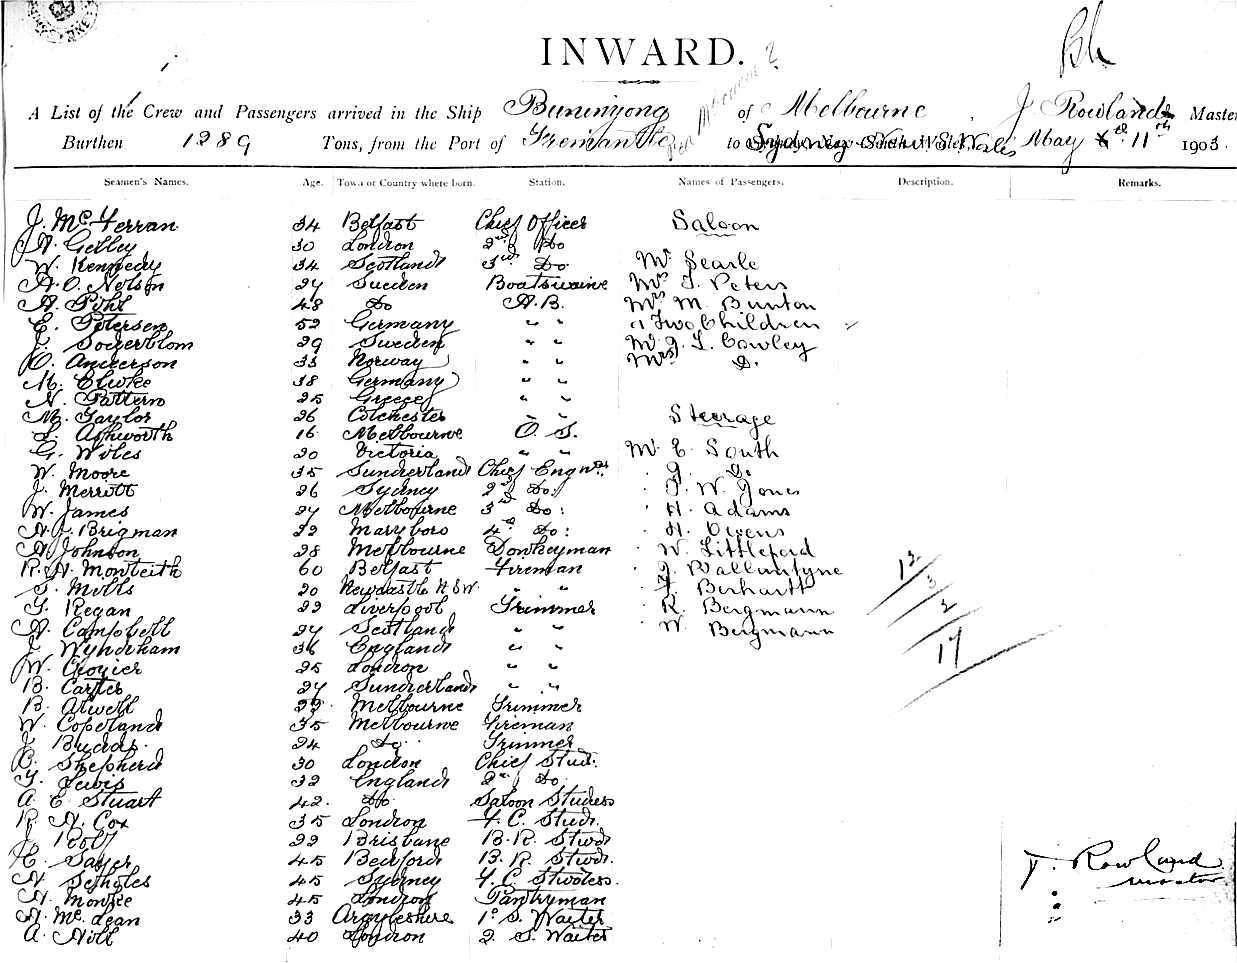 INWARD.
A List of the Crew and Passengers arrived in the Ship Buninyong of Melbourne J Rowland Master
Burthen 1289 Tons, from the Port of Fremantle to Sydney New South Wales May 11th 1903.
Seamen's Names. Age. Town or Country where born. Station. Names of Passengers. Description. Remarks.
J. McFerran 34 Belfast Chief Officer Saloon
30 London 2nd Do
W. Kennedy 34 Scotland 3rd Do Mr Searle
A.O. Nelson 27 Sweden Boatswaine Mrs J. Peters
A. Pihl 48 Do A.B. Mrs M. Bunton
E. Petersen 52 Germany " " " Two Children
J. Soderblom 29 Sweden " " Mr J. L. Cowley
O. Anderson 33 Norway " " Mrs D.
M. 38 Germany " "
N. 25 Greece " "
M. Taylor 26 Colchester " " Steerage
L. Ashworth 16 Melbourne O. S.
G. Wiles 20 Victoria " " Mr E. South
W. Moore 35 Sunderland Chief Engnr. " J. D.
J. Merritt 26 Sydney 2nd Do: " W. Jones
W. James 27 Melbourne 3rd Do: " H. Adams
A. J. Brigman 22 Maryboro 4th Do: " H. Owens
A. Johnson 28 Melbourne Donkeyman " W. Littleford
R. H. Monteith 60 Belfast Fireman " J. Ballantyne 12
20 Newcastle N.S.W. " " " Berhartt 3
T. Regan 22 Liverpool Trimmer " R. Bergmann 2
A. Campbell 27 Scotland " " " W. Bergmann
J. Wyndham 36 England " " 17
W. Crozier 25 London " "
B. Carter 27 Sunderland " "
B. Atwell 22 Melbourne Trimmer
W. Copeland 35 Melbourne Fireman
J. 24 do Trimmer
B. Shepherd 30 London Chief Stud.
T. Lewis 32 England 2nd Do
A E Stuart 42. do Saloon Studess
R. A. Cox 35 London F. C. Stud.
J. 22 Brisbane B. R. Stwd
C. Sayer 45 Bedford B. R. Stwd. J. Rowland
A. 45 Sydney F. C. Stwdess. master
A. 45 London Pantryman
A. McLean 33 Argyleshire 1st S. Waiter
A. Hill 40 London 2 S. Waiter